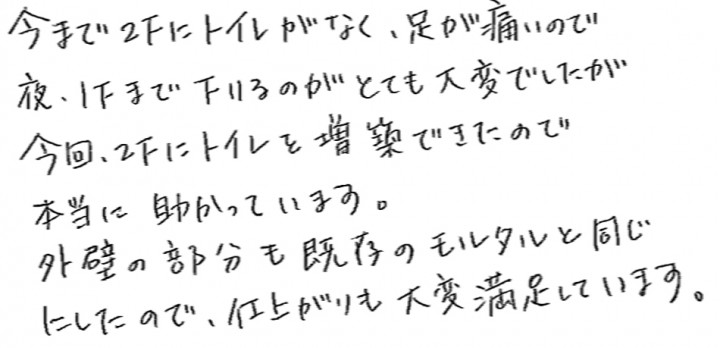 今まで2Fにトイレがなく、足が痛いので
夜、1Fまで下りるのがとても大変でしたが
今回、2Fにトイレを増築できたので
本当に助かっています。
外壁の部分も既存のモルタルと同じ
にしたので、仕上がりも大変満足しています。